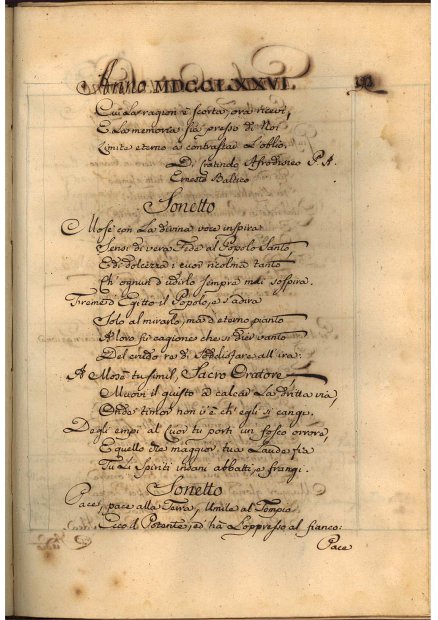 Anno MDCCLXXVI.
Cui la ragion è scorta, ora ricevi,
E la memoria sia presso di Noi
Limite eterno a contrastar l'oblio.
Di Afrodiseo P. A.
Ernesto Baltico
Sonetto
Mosè con La divina voce inspira
Sensi di vera Fede al Popolo Santo
E di dolcezza i cuor ricolma tanto
Ch'ognun d'udirlo sempre mai sospira.
Freme d'Egitto il Popolo, e s'adira
Solo al mirarlo, ma d'eterno pianto
A loro fu cagione che si dier vanto
Del crudo re di soddisfare all'ira.
A Mosè tu simil, Sacro Oratore
Muovi il giusto a calcar La dritta via,
Onde timor non v'è ch'egli si cangi.
Degli empi al Cuor tu porti un fosco orrore,
E quello che maggior tua Laude fia
Tu Li Spiriti insani abbatti, e frangi.
Sonetto
Pace, pace alla Terra, Umile al Tempio
Ecco il Potente, ed ha L'oppresso al fianco:
Pace